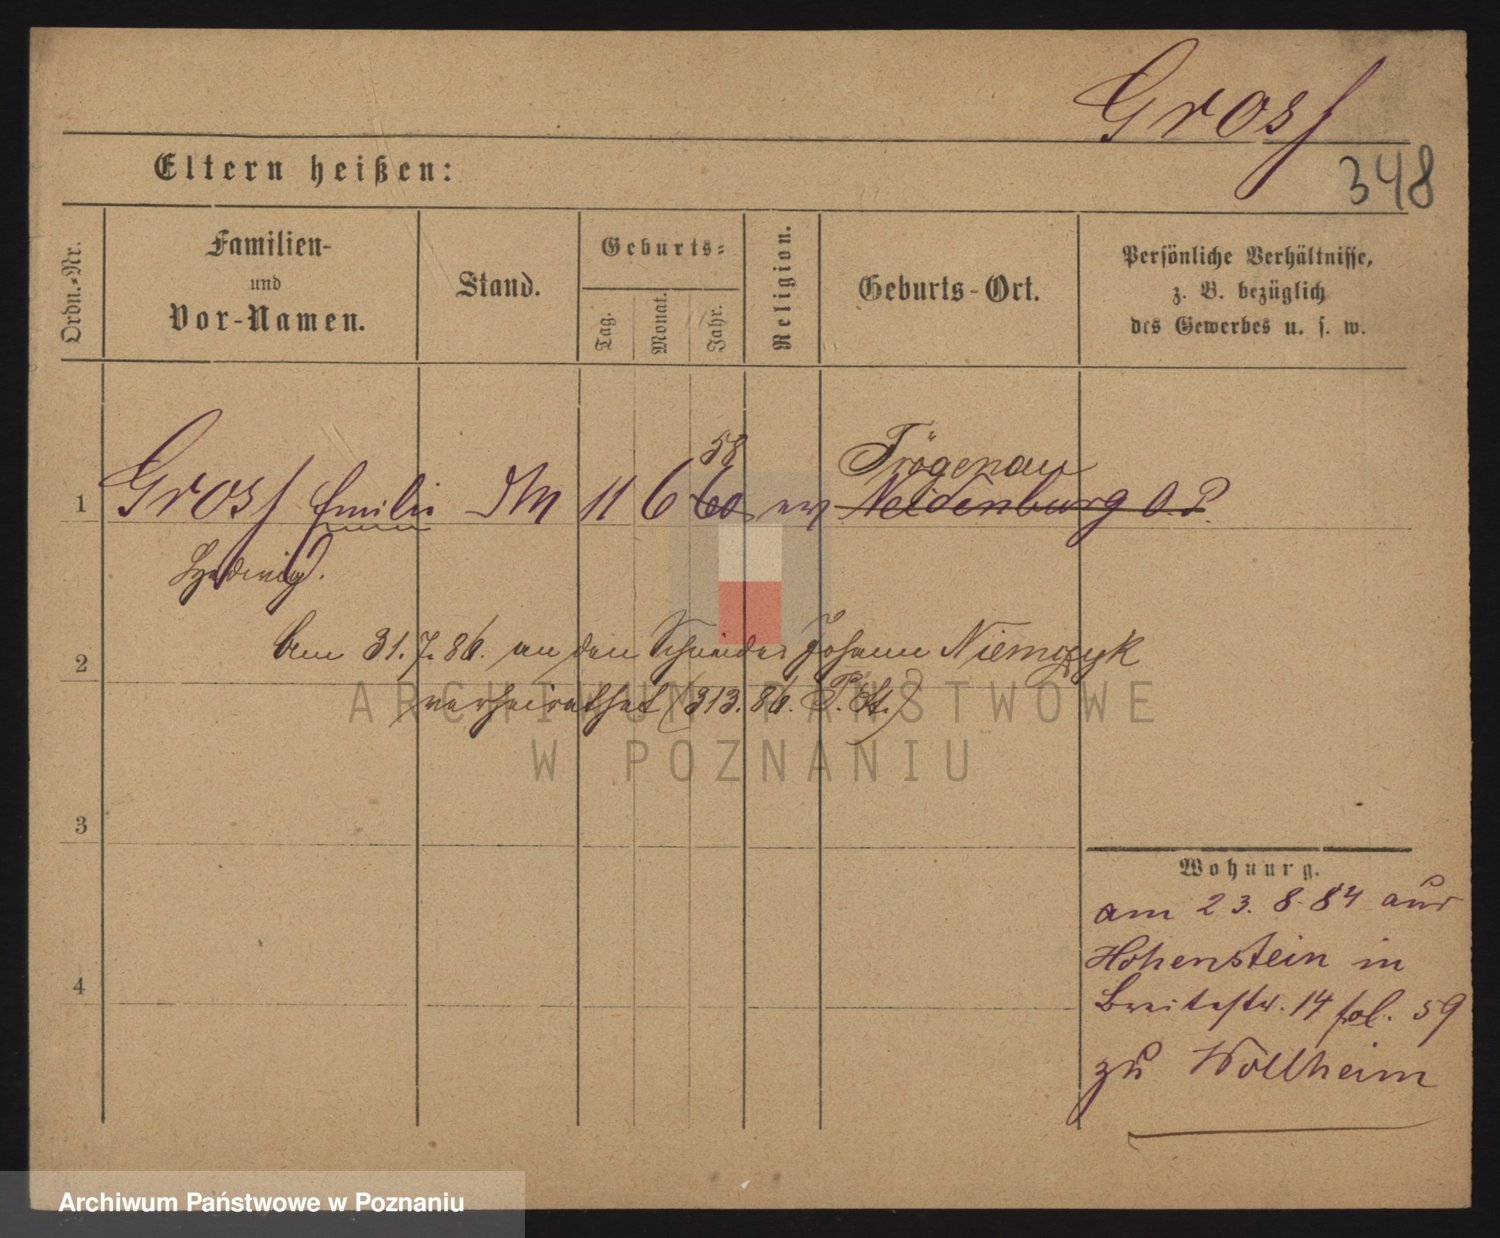 Gross
348
Eltern heißen:
Ordn.-Nr.
Familien-
und
Vor-Namen.
Stand.
Geburts-
Tag.
Monat.
Jahr.
Religion.
Geburts-Ort.
Persönliche Verhältnisse,
z. B. bezüglich
des Gewerbes u. s. w.
58 Frögenau
1 Gross Emilie DM 11 6 60 ev Neidenburg O.P.
Hedwig.
Am 31.7.86. an den Schneider Johann Niemczyk
2
verheirathet (313.86. P. St.)
ARCHIWUM PAŃSTWOWE
W POZNANIU
3
Wohnung.
am 23.8.84 aus
Hohenstein in
4
Breitestr. 14 fol. 59
zu Wollheim
Archiwum Państwowe w Poznaniu